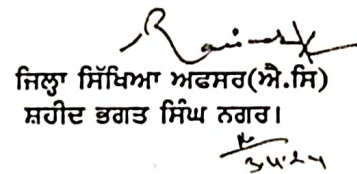 ਜਿਲ੍ਹਾ ਸਿੱਖਿਆ ਅਫਸਰ(ਐ.ਸਿ)
ਸ਼ਹੀਦ ਭਗਤ ਸਿੰਘ ਨਗਰ।